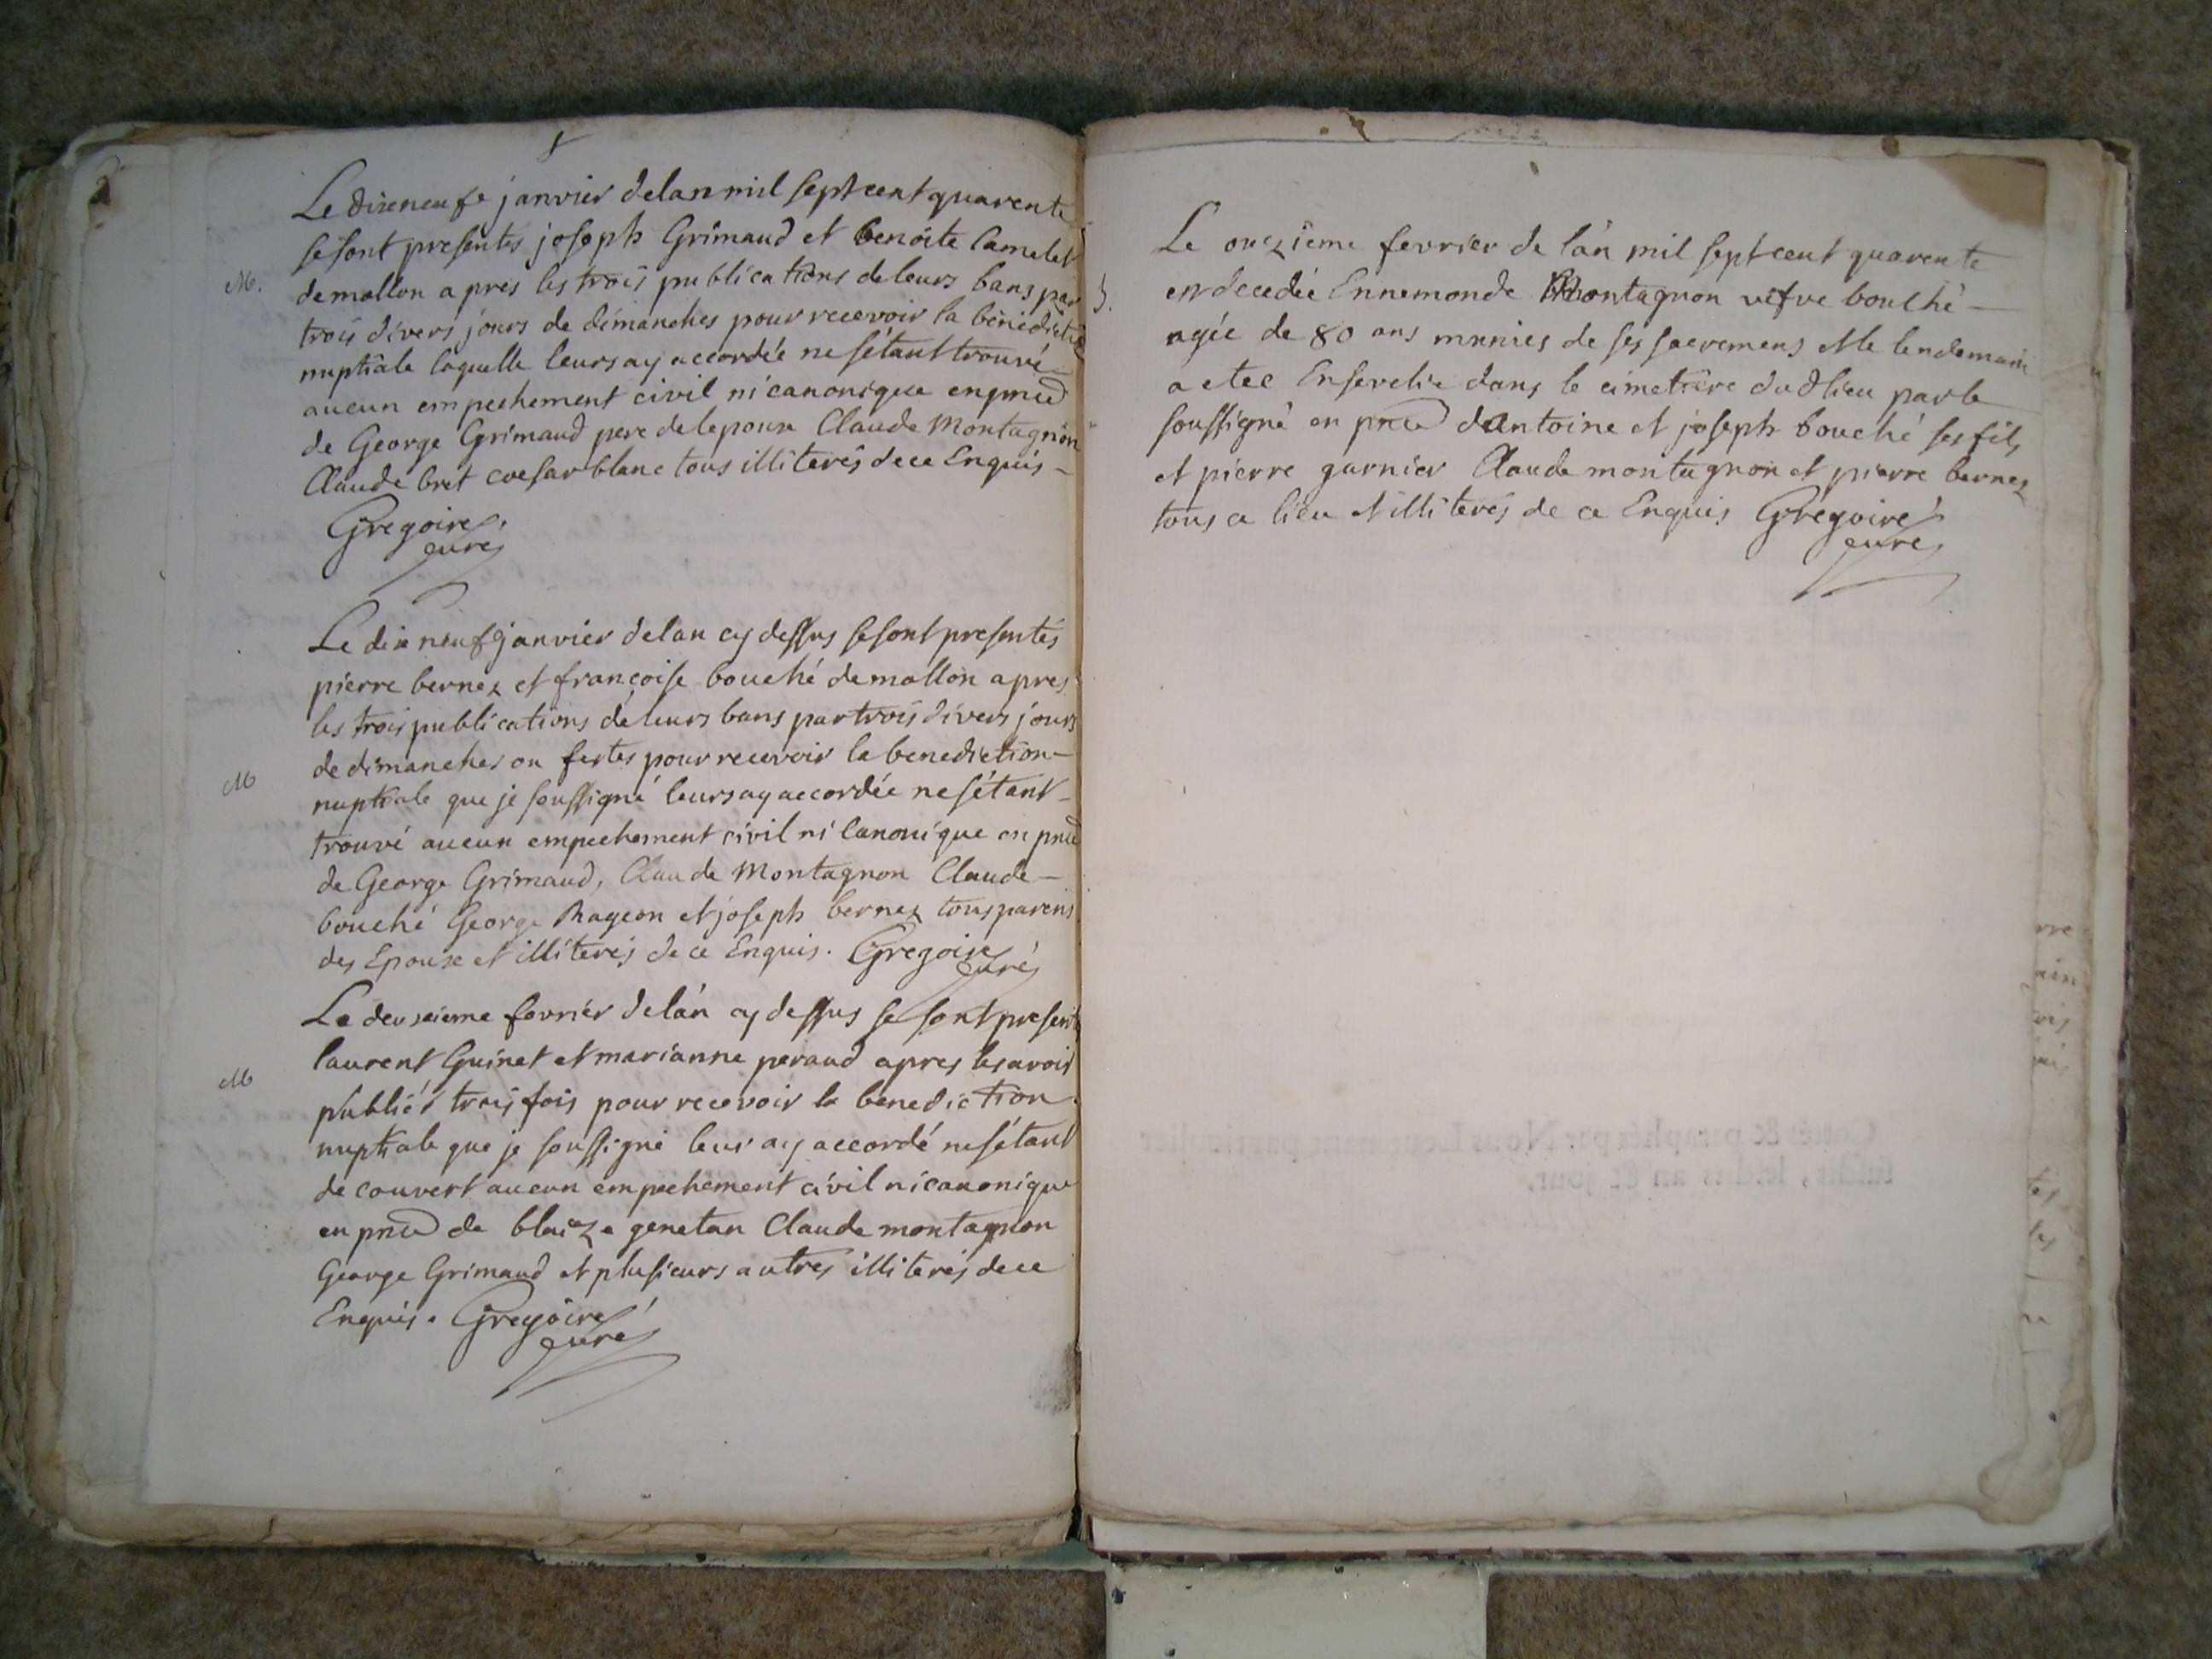 Le dixeneufe janvier delan mil sept cent quarente
se sont presentes joseph Grimaud et benoite Camelet
M.
de mollon apres les trois publications de leurs bans par
trois divers jours de dimanches pour recevoir la benedictio
nuptiale laquelle leurs ay accordée ne sétant trouvé
aucun empechement civil ni canonique en pnce
de George Grimaud pere de lepoux Claude Montagnon
Claude bret coesar blanc tous illiterés de ce Enquis
Gregoire
curé
Le dix neuf janvier delan cy dessus se sont presentés
pierre bernez et françoise bouché de mollon apres
les trois publications de leurs bans par trois divers jours
de dimanches ou festes pour recevoir la benediction
M
nuptiale que je soussigné leurs ay accordée ne sétant
trouvé aucun empechement civil ni canonique en pnce
de George Grimaud, Claude Montagnon Claude
bouché George Rageon et joseph bernez tous parens
des Epoux et illiterés de ce Enquis. Gregoire
curé
Le deuxieme fevrier de lán cy dessus se sont present
laurent Guinet et marianne peraud apres les avoir
M
publiés trois fois pour recevoir la benediction
nuptiale que je soussigné leur ay accordé ne sétant
decouvert aucun empechement civil ni canonique
en pnce de blaize genetan Claude montagnon
George Grimaud et plusieurs autres illiterés de ce
Enquis. Gregoire
curé
Le onzieme fevrier de lán mil sept cent quarente
S.
est decedée Ennemonde Montagnon vefve bouché
agée de 80 ans munies de ses sacremens et le lendemain
a etee Ensevelie dans le cimetiere dud lieu par le
soussigné en pnce dAntoine et joseph bouché ses fils
et pierre garnier Claude montagnon et pierre bernez
tous ce lieu et illiterés de ce Enquis Gregoire
curé